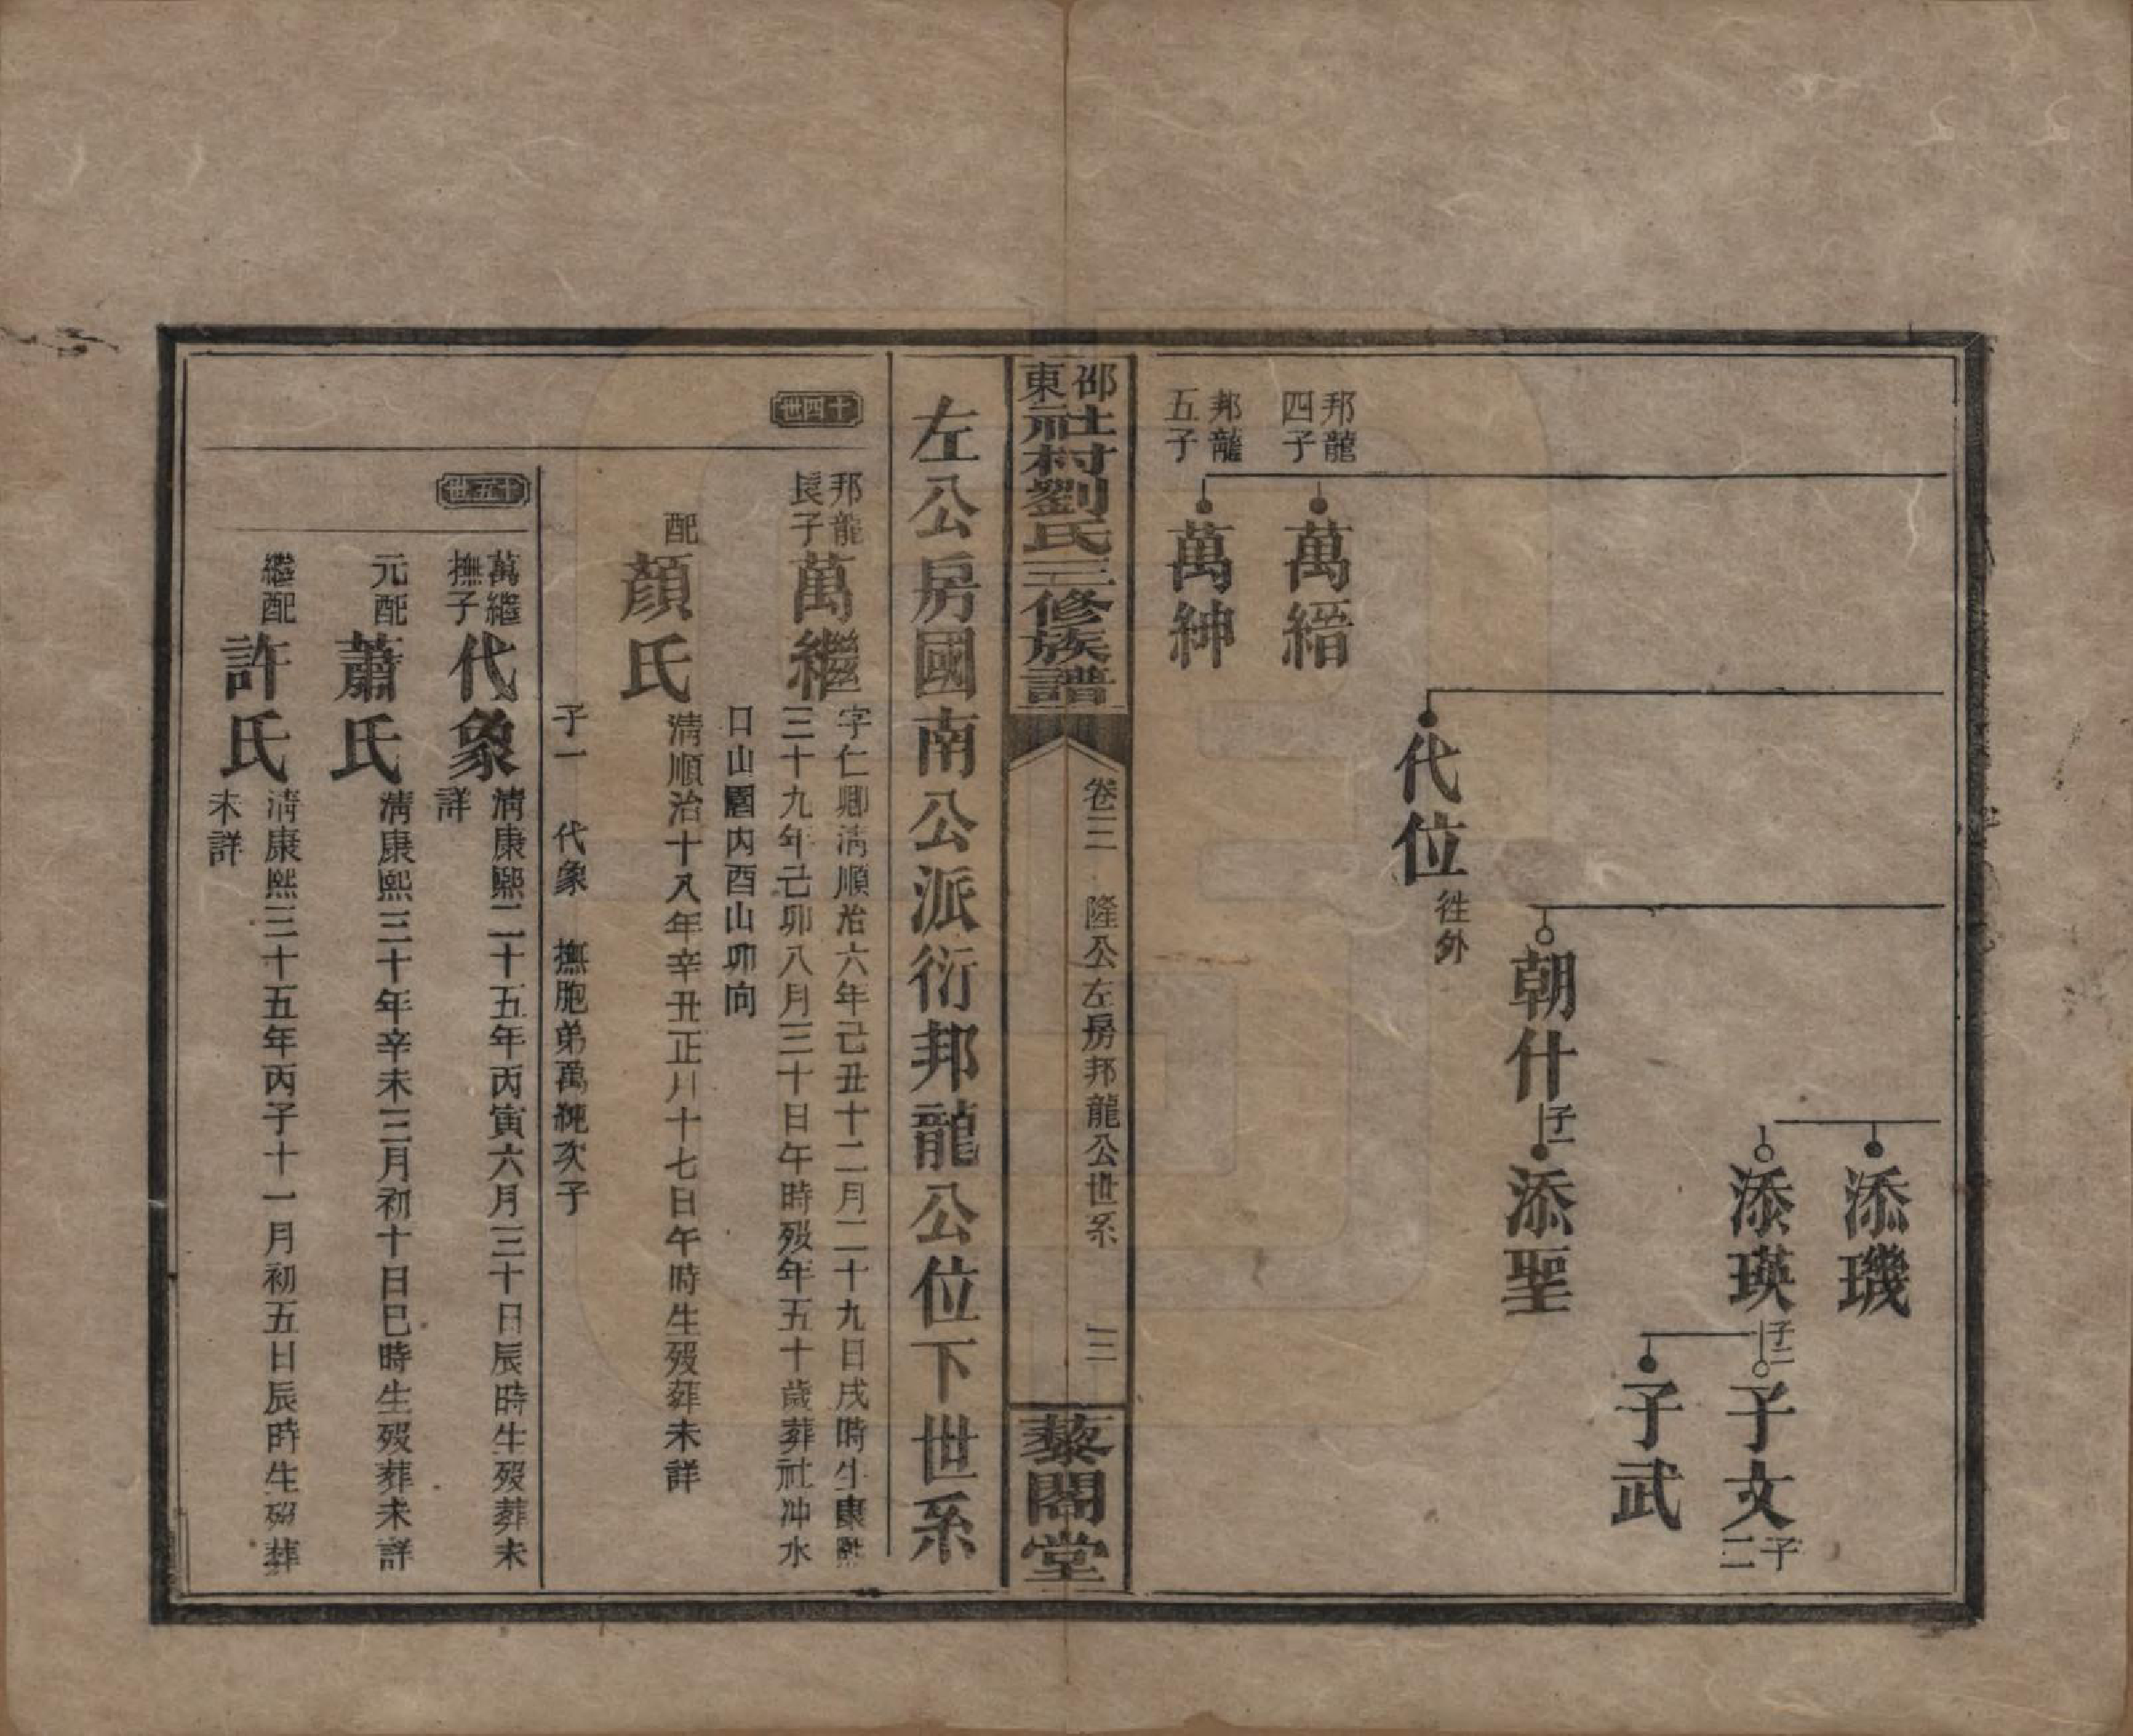 添璣
添瑛 子二
子文 子二
子武
朝什 子一
添聖
代位 徃外
邦龍四子 萬縉
邦龍五子 萬紳
邵東社村劉氏三修族譜
卷三 隆公左房邦龍公世系 三
藜閣堂
左公房國南公派衍邦龍公位下世系
十四世
邦龍長子 萬繼 字仁卿清順治六年己丑十二月二十九日戌時生康熙
三十九年己卯八月三十日午時歿年五十歲葬社冲水
口山圍內酉山卯向
配 顏氏 清順治十八年辛丑正月十七日午時生歿葬未詳
子一 代象 撫胞弟萬純次子
十五世
萬繼撫子 代象 清康熙二十五年丙寅六月三十日辰時生歿葬未
詳
元配 蕭氏 清康熙三十年辛未三月初十日巳時生歿葬未詳
繼配 許氏 清康熙三十五年丙子十一月初五日辰時生歿葬
未詳